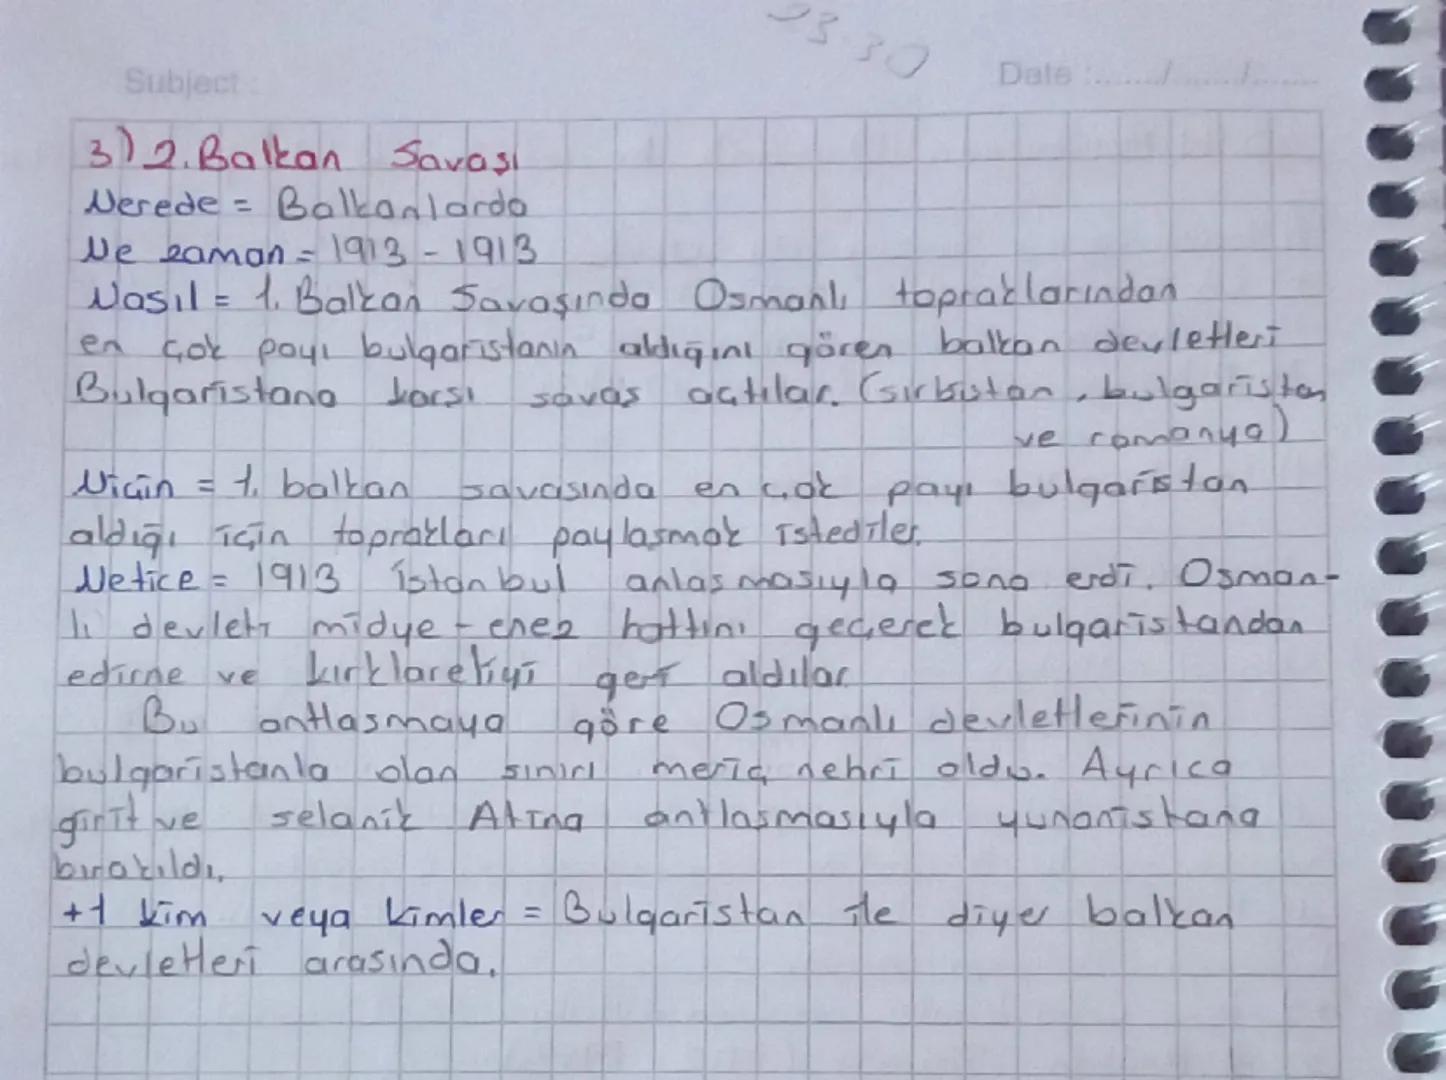 23.30
Subject :
Date :....../....../......
3) 2. Balkan Savaşı
Nerede = Balkanlarda
Ne zaman = 1913 - 1913
Nasıl = 1. Balkan Savaşında Osmanlı topraklarından
en çok payı bulgaristanın aldığını gören balkan devletleri
Bulgaristana karsı savas actılar. (sırbistan, bulgaristan
ve romanya)
Niçin = 1. balkan savasında en çok payı bulgaristan
aldığı için toprakları paylasmak istediler.
Netice = 1913 istanbul anlasmasıyla sona erdi. Osman-
lı devleti midye - enez hattını geçerek bulgaristandan
edirne ve kırklareliyi geri aldılar
Bu antlasmaya göre Osmanlı devletlerinin
bulgaristanla olan sınırı meriç nehri oldu. Ayrıca
girit ve selanik Atina antlasmasıyla yunanistana
bırakıldı.
+1 kim veya kimler = Bulgaristan ile diyer balkan
devletleri arasında.